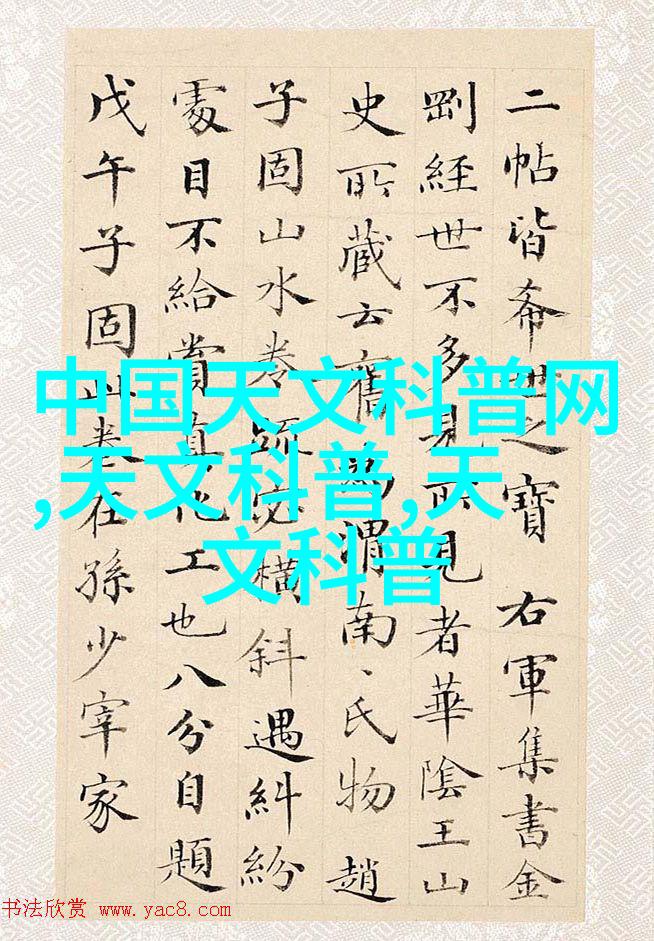 二帖皆希世之寶 右軍集書金
剛經世不多見所見者華陰王山
史所藏云舊為渭南、氏物 趙
子固山水卷疏密橫斜遇糾紛
處目不給賞真化工也八分自題
戊午子固此卷在孫少宰家
中国天文科普网
,天文科普,天
文科普
书法欣赏 www.yac8.com